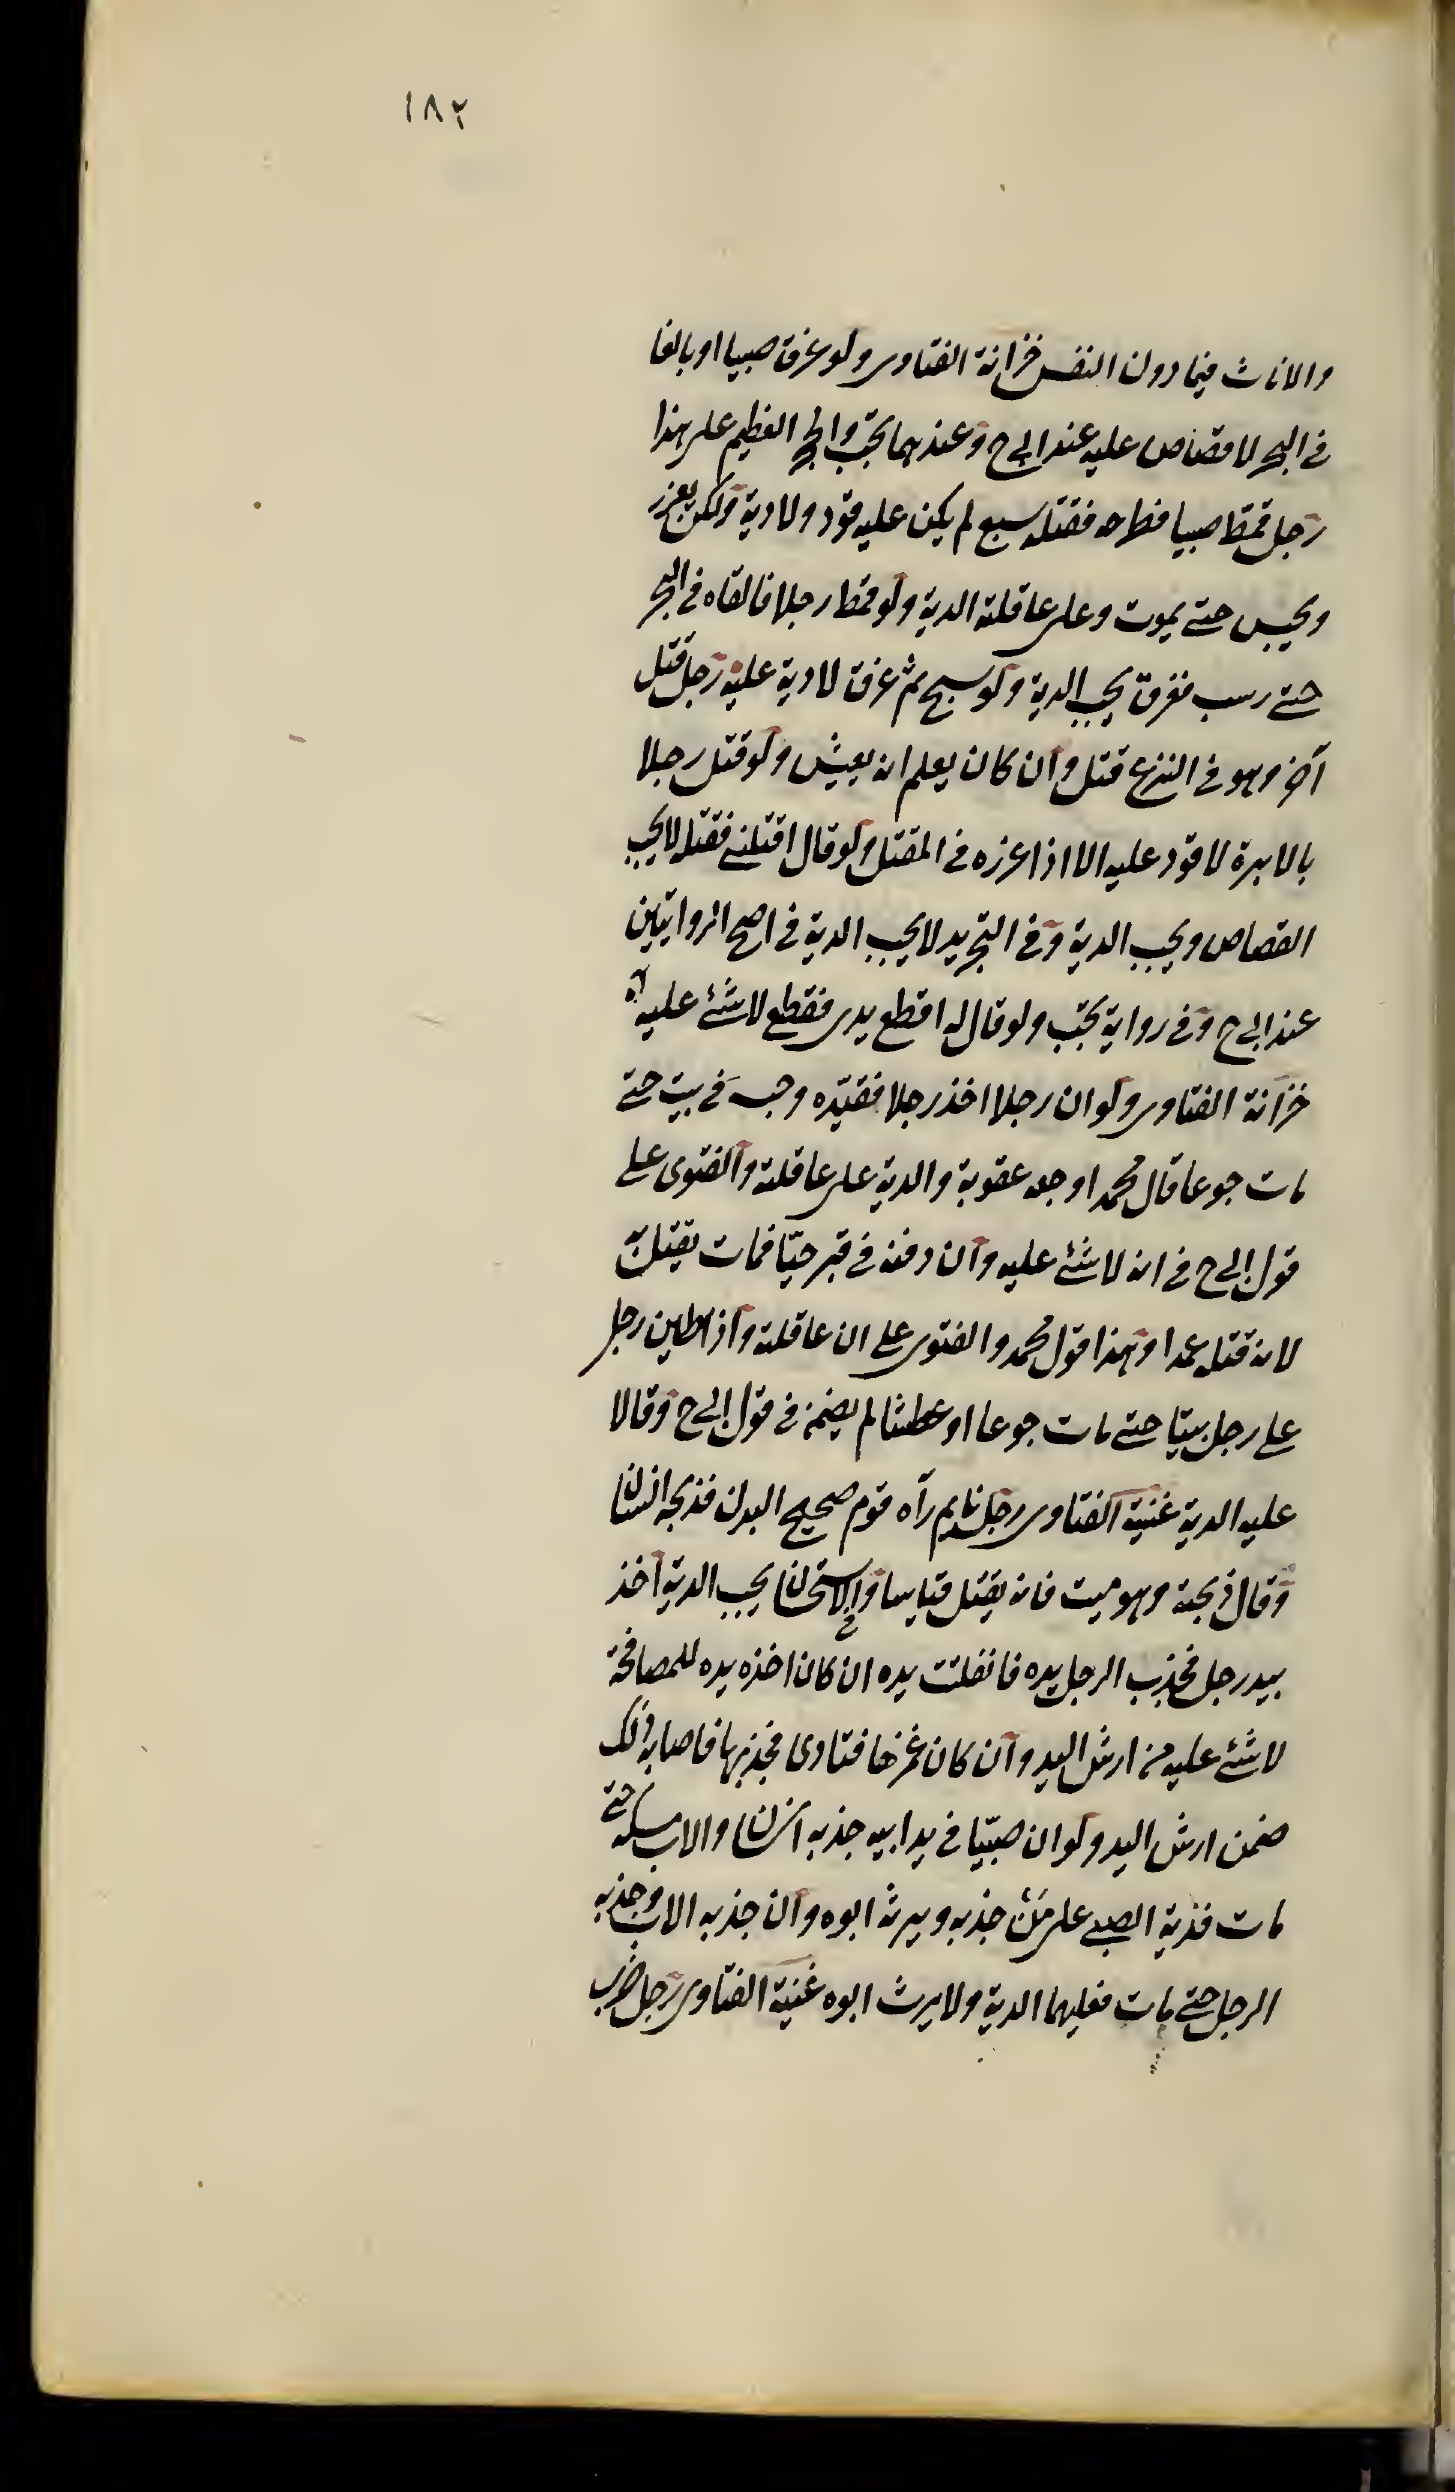 ١٨٢
والاناث فيما دون النفس خزانة الفتاوى ولو غرق صبيا او بالغا
فى البحر لا قصاص عليه عند ابى ح وعندهما يجب والبحر العظيم على هذا
رجل قمط صبيا فطرحه فقتله سبع لم يكن عليه قود ولا دية ولكن يعزر
ويحبس حتى يموت وعلى عاقلته الدية ولو قمط رجلا فالقاه فى البحر
حتى رسب فغرق يجب الدية ولو سبح ثم غرق لا دية عليه رجل قتل
آخر وهو فى النزع قتل وان كان يعلم انه يعيش ولو قتل رجلا
بالابرة لا قود عليه الا اذا غرزه فى المقتل ولو قال اقتلنى فقتله لا يجب
القصاص ويجب الدية وفى التجريد لا يجب الدية فى اصح الروايتين
عند ابى ح وفى رواية يجب ولو قال له اقطع يدى فقطع لا شئ عليه
خزانة الفتاوى ولو ان رجلا اخذ رجلا فقيده وحبسه فى بيت حتى
مات جوعا قال محمد اوجعه عقوبة والدية على عاقلته والفتوى على
قول ابى ح فى انه لا شئ عليه وان دفنه فى قبر حيا فمات يقتل به
لانه قتله عمدا وهذا قول محمد والفتوى على ان عاقلته واذا طين رجل
على رجل بيتا حتى مات جوعا او عطشا لم يضمن فى قول ابى ح وقالا
عليه الدية غنية الفتاوى رجل نايم رآه قوم صحيح البدن فذبحه انسان
وقال ذبحته وهو ميت فانه يقتل قياسا وفى الاستحسان يجب الدية اخذ
بيد رجل فجذب الرجل يده فانفلتت يده ان كان اخذه يده للمصافحة
لا شئ عليه من ارش اليد وان كان غمزها فتاذى فجذبها فاصابه ذلك
ضمن ارش اليد ولو ان صبيا فى يد ابيه جذبه انسان والاب يمسكه حتى
مات فدية الصبى على من جذبه ويرثه ابوه وان جذبه الاب وجذبه
الرجل حتى مات فعليهما الدية ولا يرث ابوه غنية الفتاوى رجل ضرب